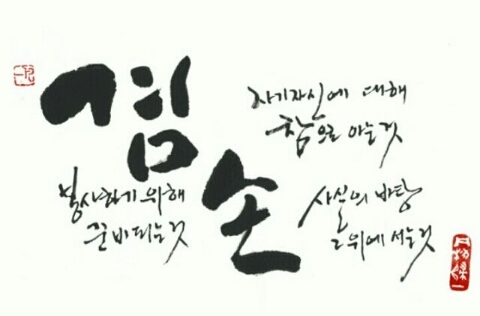 겸손
자기자신에 대해
참으로 아는것
봉사하기 위해
준비되는것
사실의 바탕
그 위에 서는것